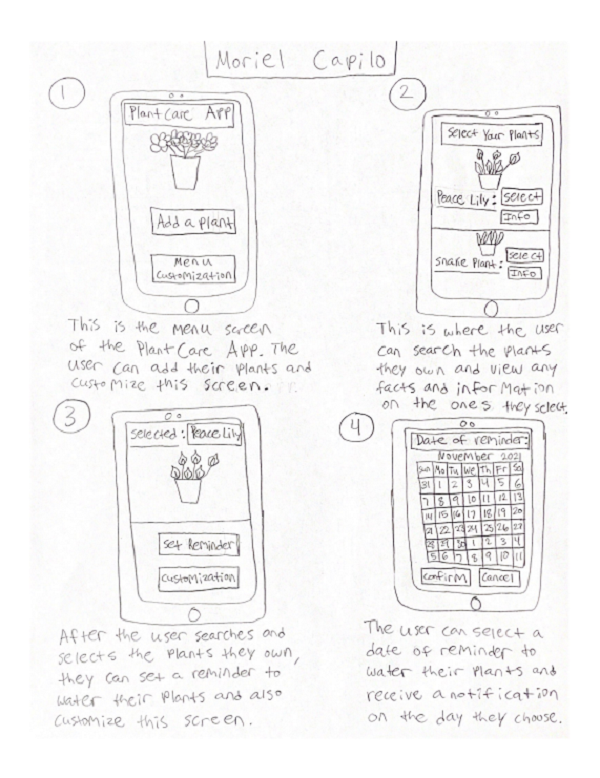 Moriel Capilo
1
Plant Care App
Add a plant
Menu
customization
This is the menu screen
of the Plant Care App. The
user can add their plants and
customize this screen.
2
Select Your Plants
Peace Lily: select
Info
Snake Plant: select
Info
This is where the user
can search the plants
they own and view any
facts and information
on the ones they select.
3
Selected: Peace Lily
Set Reminder
Customization
After the user searches and
selects the plants they own,
they can set a reminder to
water their plants and also
customize this screen.
4
Date of reminder:
November 2021
Sun Mo Tu We Th Fr Sa
31 1 2 3 4 5 6
7 8 9 10 11 12 13
14 15 16 17 18 19 20
21 22 23 24 25 26 27
28 29 30 1 2 3 4
5 6 7 8 9 10 11
Confirm Cancel
The user can select a
date of reminder to
water their plants and
receive a notification
on the day they choose.